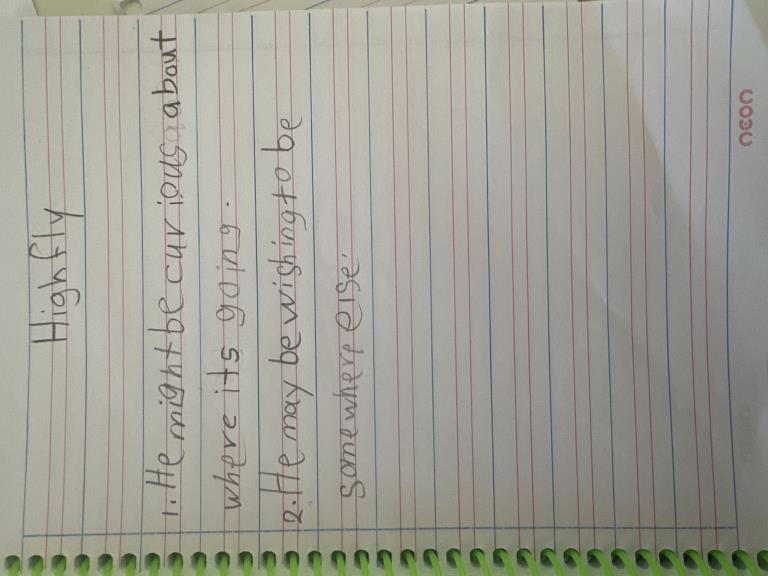 High fly
1. He might be curious about
where its going.
2. He may be wishing to be
somewhere else.
neon